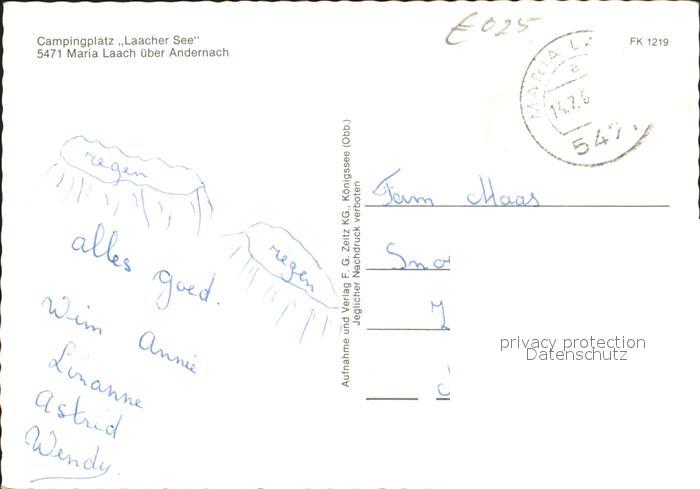 Campingplatz „Laacher See“
5471 Maria Laach über Andernach
€ 025
FK 1219
MARIA LA
a
14.7.6
547
regen
regen
alles goed.
Wim Annie
Linanne
Astrid
Wendy.
Aufnahme und Verlag F. G. Zeitz KG., Königssee (Obb.)
Jeglicher Nachdruck verboten
Fam Maas
Sno
privacy protection
Datenschutz